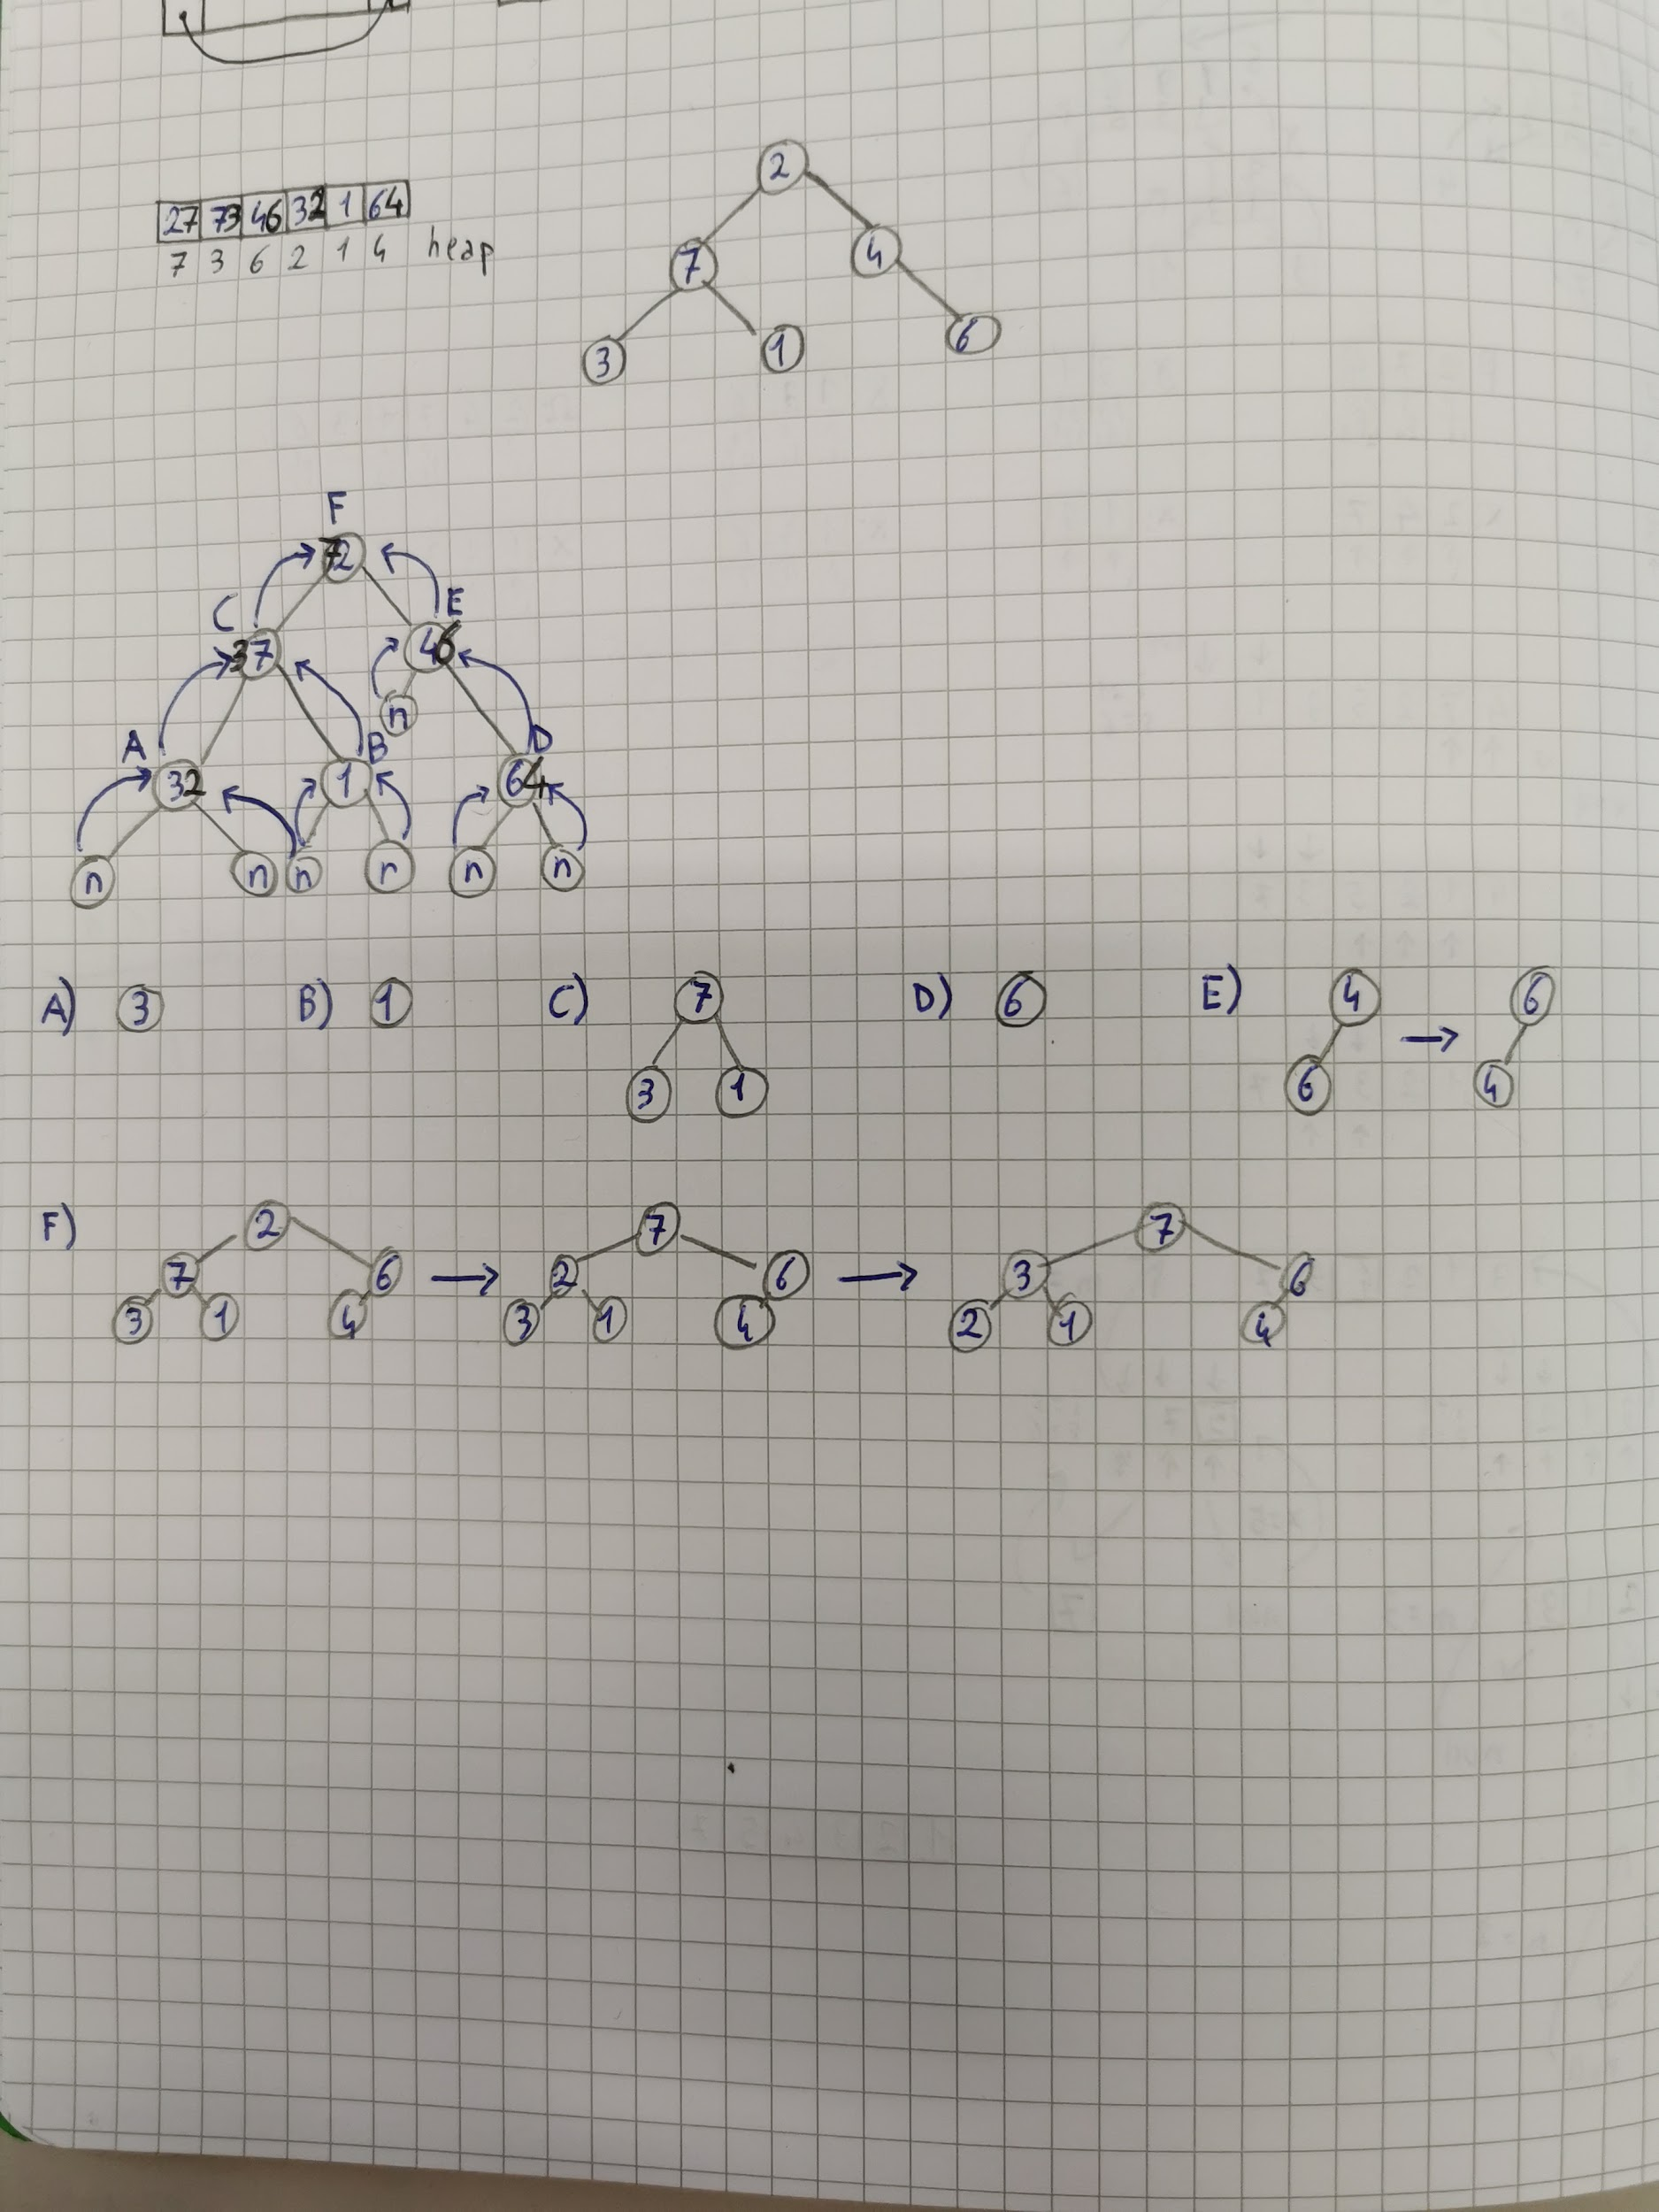 27 73 46 32 1 64
7 3 6 2 1 4 heap
2
7 4
3 1 6
F
72
C E
37 46
n
A B D
32 1 64
n n n n n n
A) 3 B) 1 C) 7 3 1 D) 6 E) 4 6 → 6 4
F) 2 7 6 3 1 4 → 7 2 6 3 1 4 → 7 3 6 2 1 4